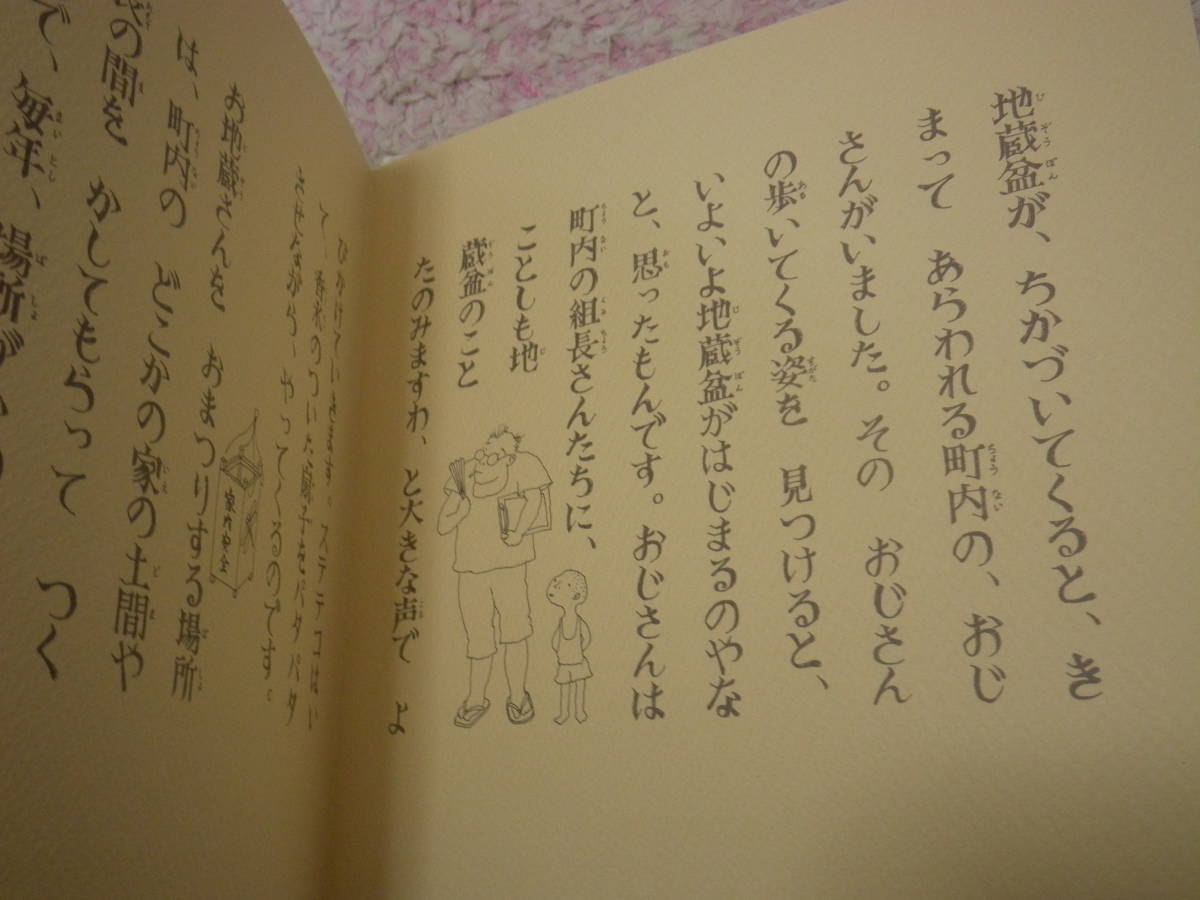 地蔵盆が、ちかづいてくると、き
まって あらわれる町内の、おじ
さんがいました。その おじさん
の歩いてくる姿を 見つけると、
いよいよ地蔵盆がはじまるのやな
と、思ったもんです。おじさんは
町内の組長さんたちに、
ことしも地
蔵盆のこと
たのみますわ、と大きな声で よ
びかけていきます。ステテコはい
て、香水のついた扇子をパタパタ
させながら、やってくるのです。
お地蔵さんを おまつりする場所
は、町内の どこかの家の土間や
の間を かしてもらって つく
で、毎年、場所が
家内安全